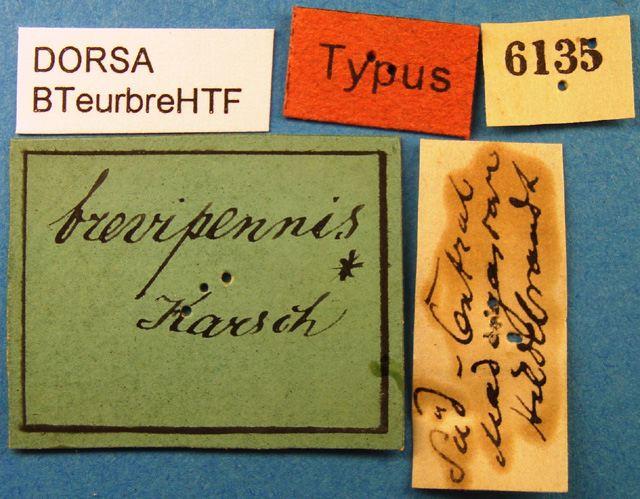 DORSA
BTeurbreHTF
Typus
6135
brevipennis
*
Karsch
Süd-Central
Madagascar
Hildebrandt